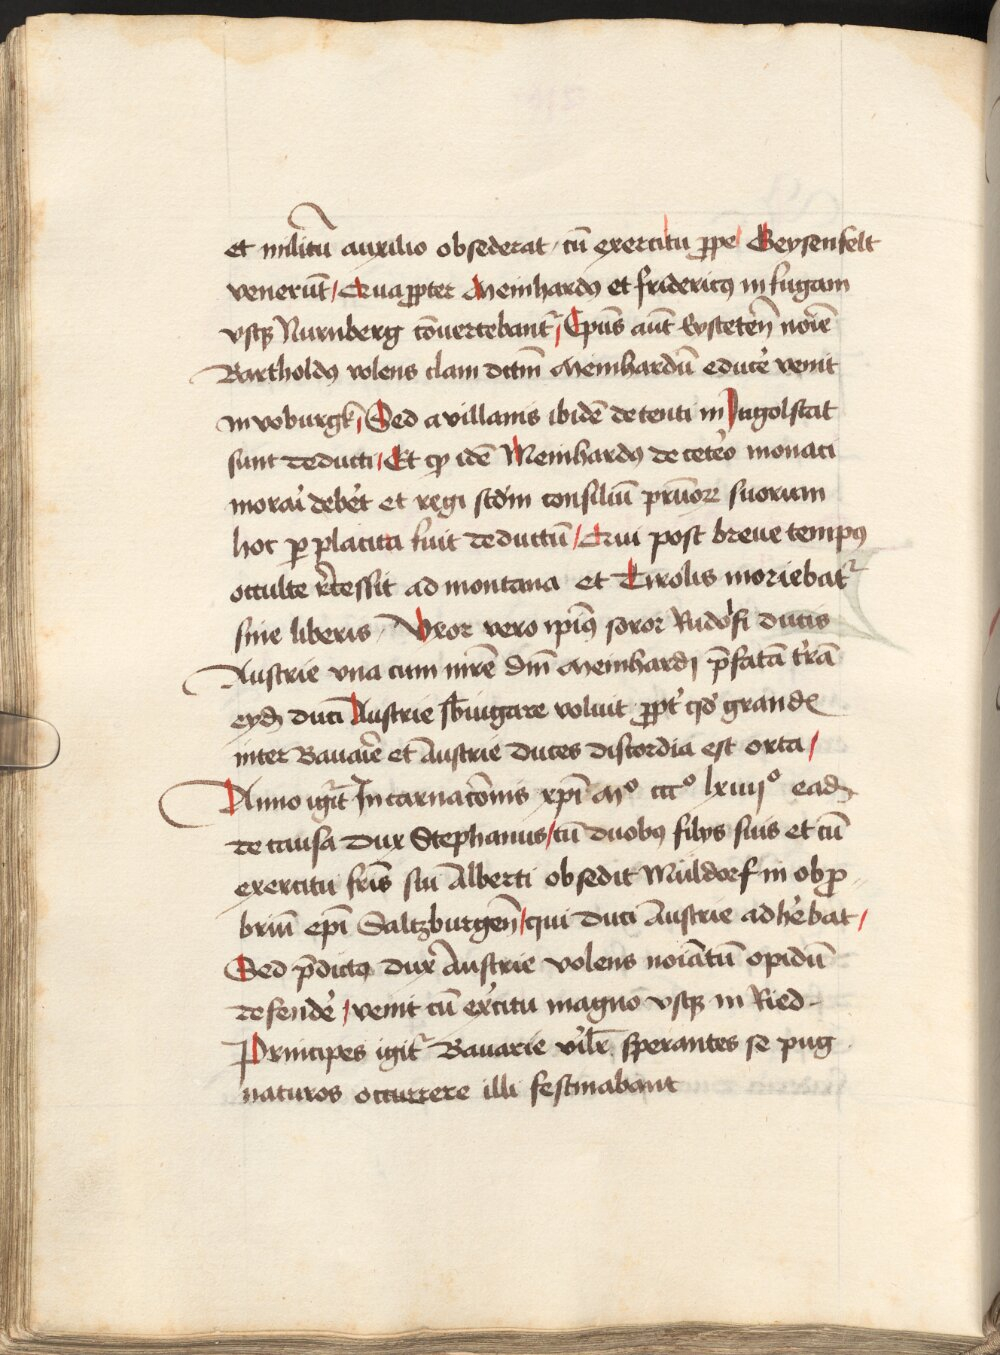 et militū auxilio obsederat / cū exercitu ꝓpe / Geysenfelt
venerūt / Quaꝓpter Meinhardꝰ et fridericꝰ in fugam
vsqꝫ Nurnberg cōuertebantᷣ / Epūs aūt Eystetēn noīe
Bartholdꝰ volens clam dctm̄ Meinhardū educe᷑ venit
in voburgk / Sed a villanis ibidē detenti in Ingolstat
sunt deducti / Et qꝫ idē Meinhardꝰ de cete᷑o monaci
morai᷑ debe᷑t et regi scd̄m consiliū prūoꝝ suorum
hoc ꝑ placita fuit deductū / Qui post breue tempꝰ
occulte re᷑cessit ad montana et Tirolis moriebatᷣ
sine liberis / Vxor vero ipiꝰ soror Rudo᷑fi ducis
Austrie vna cum mr̄e dm̄ Meinhardj p̄fatā tr᷑ā
eyd̄ duci Austrie sb̄iugare voluit ꝓpt᷑ qd̄ grandꝭ
inter Bauar᷑ie et Austrie duces discordia est orta /
Anno igr̄t Incarnac̄onis xp̄i Mº cccº lxiiijº ead̄
de causa dux Stephanus / cū duobꝰ filys suis et cū
exercitu fr̄is sui Alberti obsedit Müldorf in obꝓ-
briū ep̄i Saltzburgen̄ / qui duci Austrie adhe᷑bat /
Sed p̄dictꝰ dux Austrie volens noīatū opidū
defende᷑ / venit cū exe᷑citu magno vsqꝫ in Ried
Principes igitᷣ Bauarie vi᷑lr̄ sperantes se pug
naturos occurrere illi festinabant